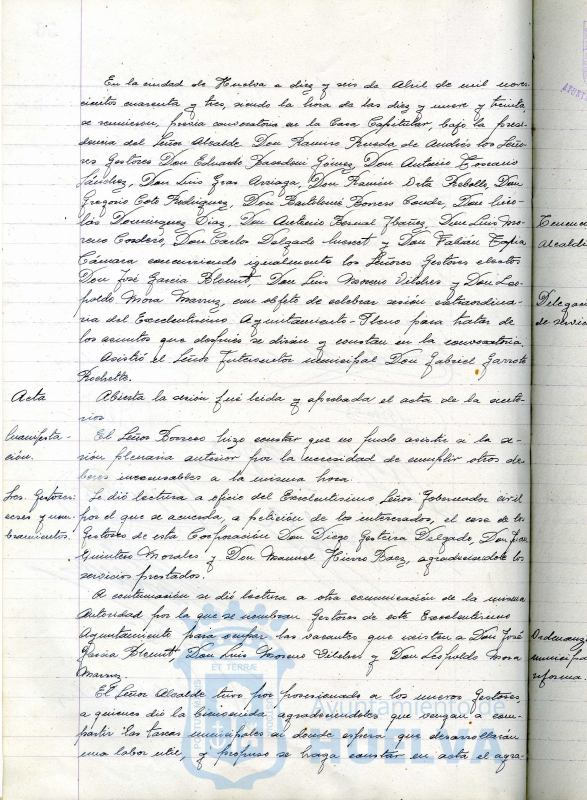 En la ciudad de Huelva a diez y seis de Abril de mil nove-
cientos cuarenta y tres, siendo la hora de las diez y nueve y treinta,
se reunieron, previa convocatoria en la Casa Capitular, bajo la presi-
dencia del Señor Alcalde Don Ramiro Rueda de Andrés los Seño-
res Gestores Don Eduardo Gómez, Don Antonio Toscano
Sánchez, Don Luis Gras Arriaga, Don Ramón Orta Rebollo, Don
Gregorio Coto Rodriguez, Don Bartolomé Borrero Conde, Don Nico-
lás Dominguez Diaz, Don Antonio Bernal Ibañez, Don Luis Mo-
reno Cordero, Don Carlo Delgado y Don Fabián Tapia
Cámara concurriendo igualmente los Señores Gestores electos
Don José García Don Luis Moreno Vilches y Don Leo-
poldo Mora con objeto de celebrar sesión extraordina-
ria del Excelentísimo Ayuntamiento Pleno para tratar de
los asuntos que después se dirán y constan en la convocatoria.
Asistió el Señor Interventor municipal Don Gabriel Garrote
Acta
Abierta la sesión fué leida y aprobada el acta de la ante-
rior.
Manifesta-
ción.
El Señor Borrero hizo constar que no pudo asistir a la se-
sión plenaria anterior por la necesidad de cumplir otros de-
beres inexcusables a la misma hora.
Sres. Gestores:
ceses y nom-
bramientos.
Se dió lectura a oficio del Excelentísimo Señor Gobernador civil
por el que se acuerda, a petición de los interesados, el cese de los
Gestores de esta Corporación Don Diego Delgado, Don José
Quintero Morales y Don Manuel Hierro Baez, agradeciendole los
servicios prestados.
A continuación se dió lectura a otra comunicación de la misma
Autoridad por la que se nombran Gestores de este Excelentísimo
Ayuntamiento para ocupar las vacantes que existen a Don José
García Don Luis Moreno Vilches y Don Leopoldo Mora
El Señor Alcalde tuvo por posesionados a los nuevos Gestores,
a quienes dió la bienvenida, agradeciendoles que vengan a com-
partir las tareas municipales en donde espera que desarrollarán
una labor util, y propuso se haga constar en acta el agra-
Tenencia
Alcaldi
Delegac
de servic
Ordenanz
municipa
reforma.
ET TERRAE
Ayuntamiento de
HUELVA